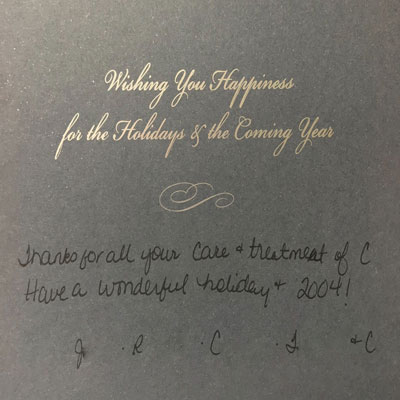 Wishing You Happiness
for the Holidays & the Coming Year
Thanks for all your care + treatment of C
Have a wonderful holiday + 2004!
J . R . C . T + C